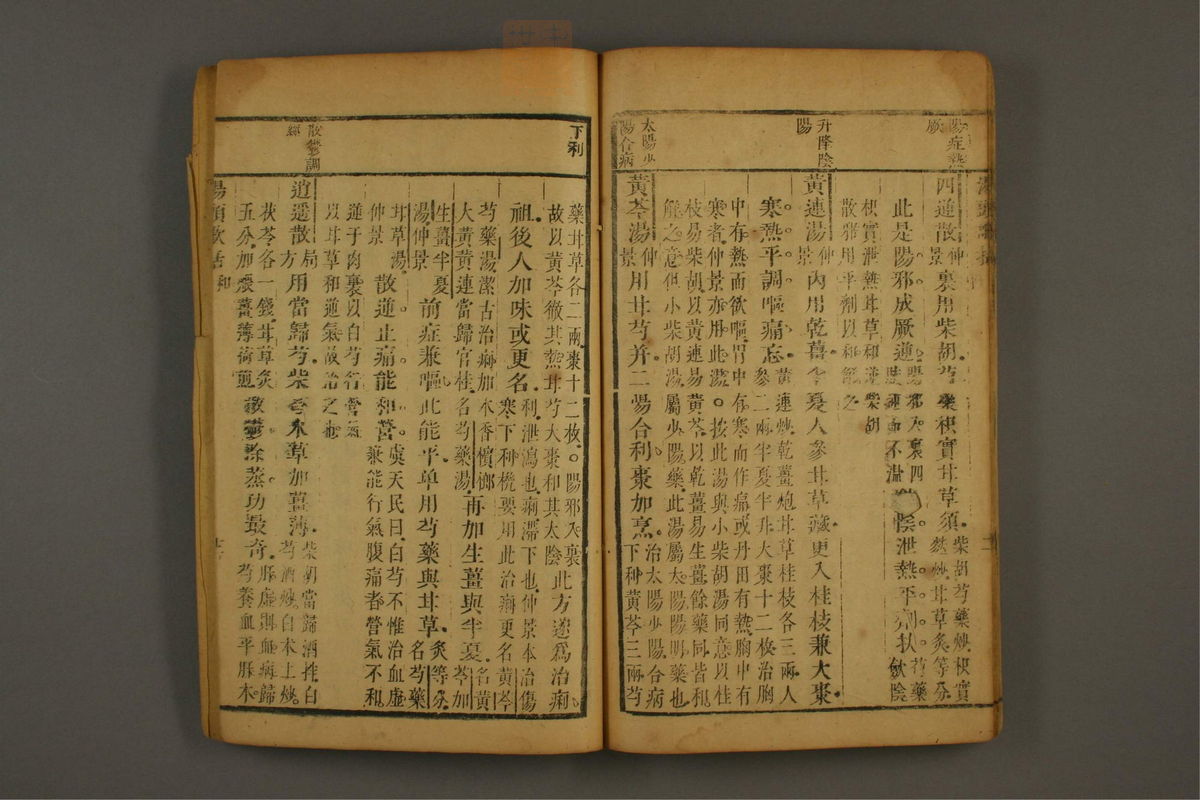 陽症熱
厥
四逆散 仲景 裏用柴胡芍藥枳實甘草須 柴胡芍藥炒枳實
麩炒甘草炙等分
此是陽邪成厥逆 陽邪入裏四
逆而不溫 斂陰泄熱平劑扶 芍藥斂陰
枳實泄熱甘草和逆柴胡
散邪用平劑以和解之
升降陰
陽
黃連湯 仲景 內用乾薑 半夏人參甘草藏更入桂枝兼大棗
寒熱平調嘔痛忘 黃連炒乾薑炮甘草桂枝各三兩人
參二兩半夏半升大棗十二枚治胸
中有熱而欲嘔胃中有寒而作痛或丹田有熱胸中有
寒者仲景亦用此湯○按此湯與小柴胡湯同意以桂
枝易柴胡以黃連易黃芩以乾薑易生薑餘藥同皆和
解之意但小柴胡湯屬少陽藥此湯屬太陽陽明藥也
太陽少
陽合病
黃芩湯 仲景 用甘芍并二陽合利棗加烹 治太陽少陽合病
下利黃芩三兩芍
藥甘草各二兩棗十二枚○陽邪入裏
故以黃芩徹其熱甘芍大棗和其太陰 此方遂爲治痢
下利
祖後人加味或更名 利泄瀉也痢滯下也仲景本治傷
寒下利機要用此治痢更名黃芩
芍藥湯潔古治痢加木香檳榔
大黃黃連當歸官桂名芍藥湯 再加生薑與半夏 名黃
芩加
生薑半夏
湯仲景 前症兼嘔此能平單用芍藥與甘草 炙等分
名芍藥
甘草湯
仲景 散逆止痛能和營 虞天民曰白芍不惟治血虛
兼能行氣腹痛者營氣不和
逆于肉裏以白芍行營氣
以甘草和逆氣故治之也
散鬱調
經
逍遥散 局方 用當歸芍柴苓朮草加薑薄 柴胡當歸酒拌白
芍酒炒白朮土炒
茯苓各一錢甘草炙
五分加煨薑薄荷煎 散鬱除蒸功最奇 肝虛則血病歸
芍養血平肝木
湯頭歌括 和